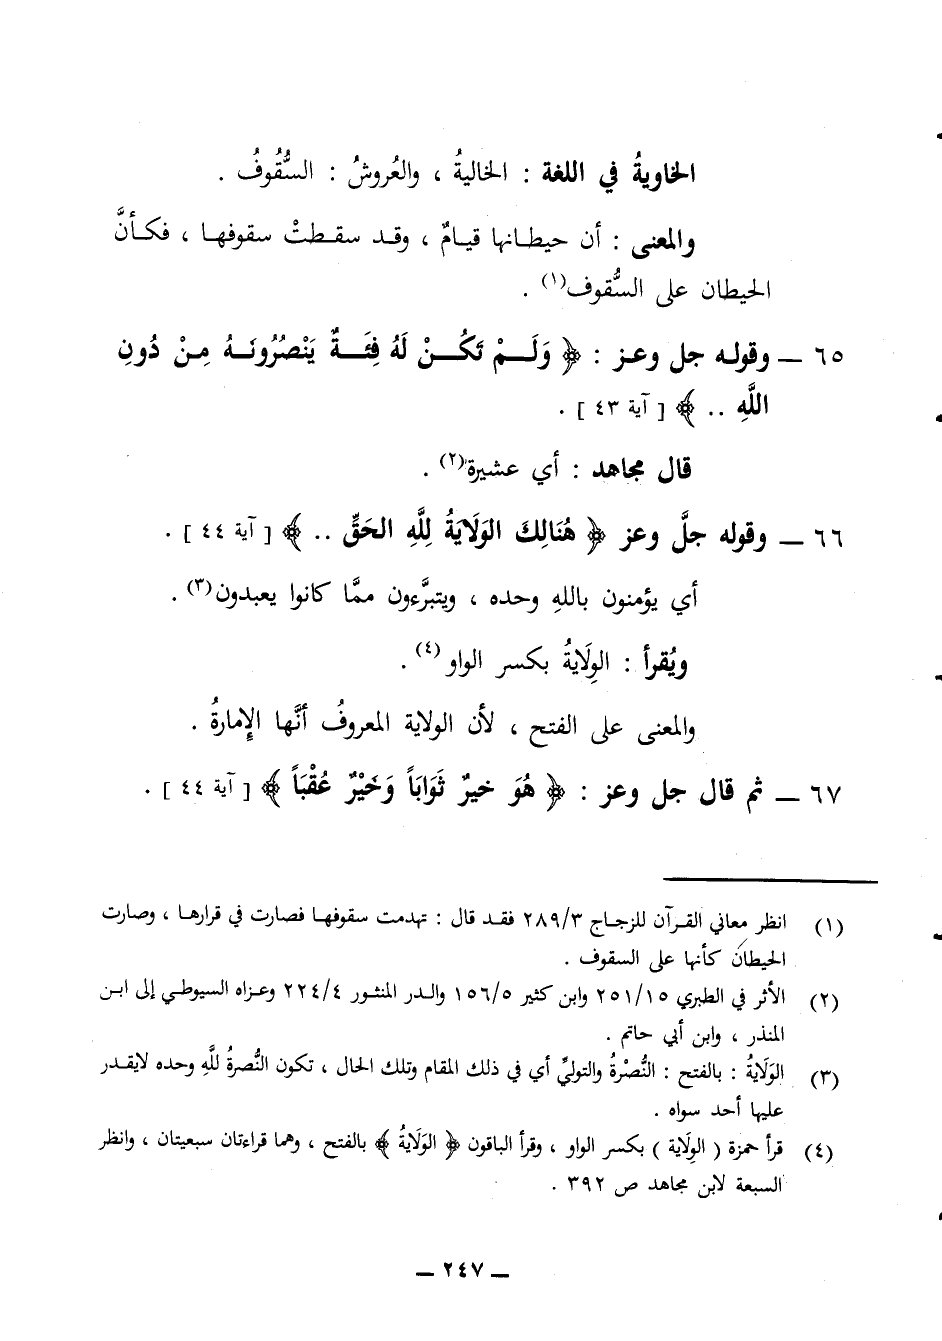 الخاويةُ في اللغة : الخاليةُ ، والعُروشُ : السُّقُوفُ .
والمعنى : أن حيطانها قيامٌ ، وقد سقطتْ سقوفها ، فكأنَّ
الحيطان على السُّقوف(١) .
٦٥ ــ وقوله جل وعز : ﴿ وَلَمْ تَكُنْ لَهُ فِئَةٌ يَنْصُرُونَهُ مِنْ دُونِ
اللَّهِ .. ﴾ [ آية ٤٣ ] .
قال مجاهد : أي عشيرة(٢) .
٦٦ ــ وقوله جلَّ وعز ﴿ هُنَالِكَ الوَلَايَةُ لِلَّهِ الحَقِّ .. ﴾ [ آية ٤٤ ] .
أي يؤمنون باللهِ وحده ، ويتبرَّءون ممَّا كانوا يعبدون(٣) .
ويُقرأ : الوِلَايةُ بكسر الواو(٤) .
والمعنى على الفتح ، لأن الولاية المعروفُ أنَّها الإمارةُ .
٦٧ ــ ثم قال جل وعز : ﴿ هُوَ خيرٌ ثَوَابَاً وَخَيْرٌ عُقْبَاً ﴾ [ آية ٤٤ ] .
(١) انظر معاني القرآن للزجاج ٢٨٩/٣ فقد قال : تهدمت سقوفها فصارت في قرارها ، وصارت
الحيطان كأنها على السقوف .
(٢) الأثر في الطبري ٢٥١/١٥ وابن كثير ١٥٦/٥ والدر المنثور ٢٢٤/٤ وعزاه السيوطي إلى ابن
المنذر ، وابن أبي حاتم .
(٣) الوَلَايةُ : بالفتح : النُّصْرةُ والتوليِّ أي في ذلك المقام وتلك الحال ، تكون النُّصرةُ للَّهِ وحده لايقدر
عليها أحد سواه .
(٤) قرأ حمزة ( الوِلاية ) بكسر الواو ، وقرأ الباقون ﴿ الوَلَايةُ ﴾ بالفتح ، وهما قراءتان سبعيتان ، وانظر
السبعة لابن مجاهد ص ٣٩٢ .
ــ ٢٤٧ ــ